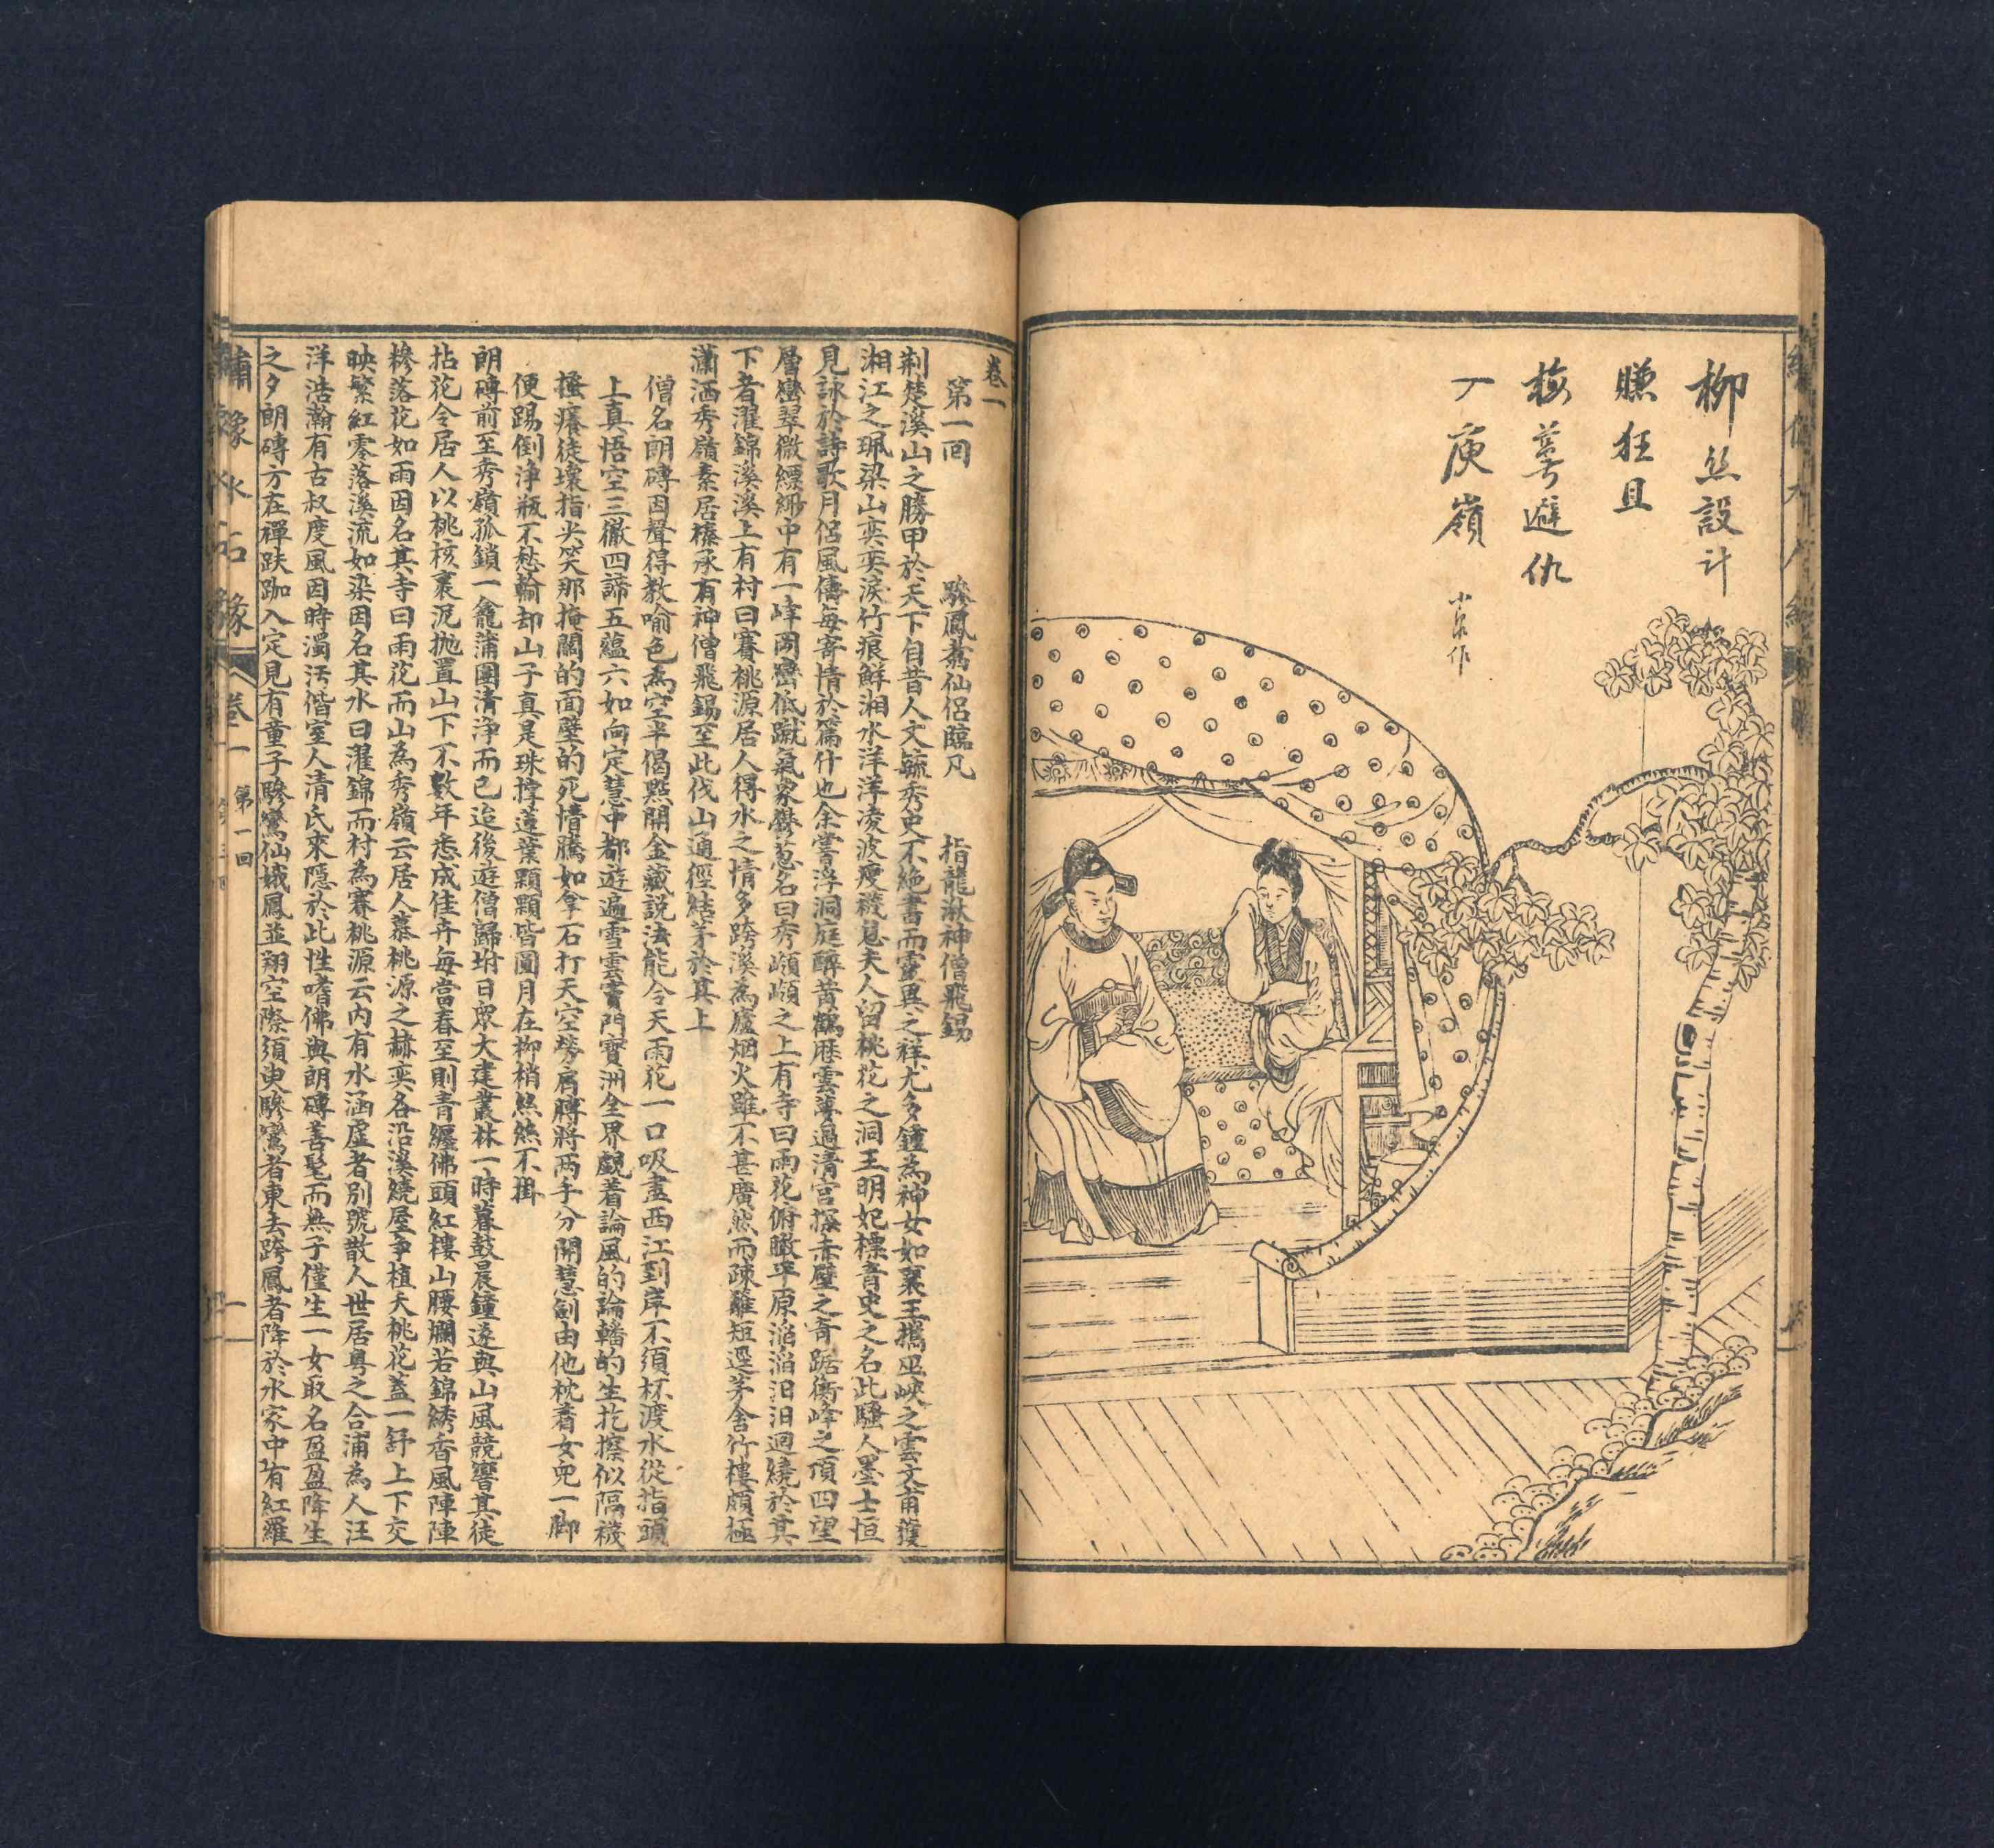 柳絲設計
賺狂且
梅萼避仇
丁庾嶺
小泉作
卷一
第一回 驂鳳鸞仙侶臨凡 指龍湫神僧飛錫
荆楚溪山之勝甲於天下自昔人文毓秀史不絶書而靈異之祥尤多鍾為神女如襄王攜巫峽之雲交甫獲
湘江之珮梁山奕奕淚竹痕鮮湘水洋洋凌波履襪息夫人留桃花之洞王明妃標青史之名此騷人墨士恒
見詠於詩歌月侣風儔每寄情於篇什也余嘗浮洞庭醉黄鶴歷雲夢過清宫探赤壁之奇踞衡峰之頂四望
層巒翠微縹緲中有一峰岡巒低蹴氣象鬱葱名曰秀嶺嶺之上有寺曰雨花俯瞰平原滔滔汩汩迴繞於其
下者濯錦溪溪上有村曰賽桃源居人得水之情多跨溪為廬烟火雖不甚廣然而疎籬短逕茅舍竹樓頗極
瀟洒秀嶺素居榛承有神僧飛錫至此伐山通徑結茅於其上
僧名朗磚因聲得教喻色為空半偈㸃開金藏説法能令天雨花一口吸盡西江到岸不須杯渡水從指頭
上真悟空三徹四諦五藴六如向定慧中都遊遍雪雲竇門寶洲全界覷着論風的論轓的生扢擦似隔襪
搔癢徒壞指尖笑那掩關的面壁的死惜騰如拿石打天空勞屑膊將兩手分開慧劍由他枕着女兜一脚
便踢倒浄瓶不愁輪却山子真是珠撑蓮葉顆顆皆圓月在柳梢絲絲不掛
朗磚前至秀嶺孤鎖一龕蒲團清淨而已迨後遊僧歸坿日眾大建叢林一時暮鼓晨鐘遂與山風競響其徒
拈花令居人以桃核裹泥抛置山下不數年悉成佳卉每當春至則青纒佛頭紅樓山腰斕若錦綉香風陣陣
糝落花如雨因名其寺曰雨花而山為秀嶺云居人慕桃源之赫奕各沿溪繞屋争植夭桃花蓋一舒上下交
映繁紅零落溪流如染因名其水曰濯錦而村為賽桃源云内有水涵虚者别號散人世居粤之合浦為人汪
洋浩瀚有古叔度風因時濁汚偕室人清氏來隱於此性嗜佛與朗磚善髦而無子僅生一女取名盈盈降生
之夕朗磚方在禪趺跏入定見有童子驂鸞仙娥鳳並翔空際須臾驂鸞者東去跨鳳者降於水家中有紅羅
繡像水石緣 卷一 第一回 一